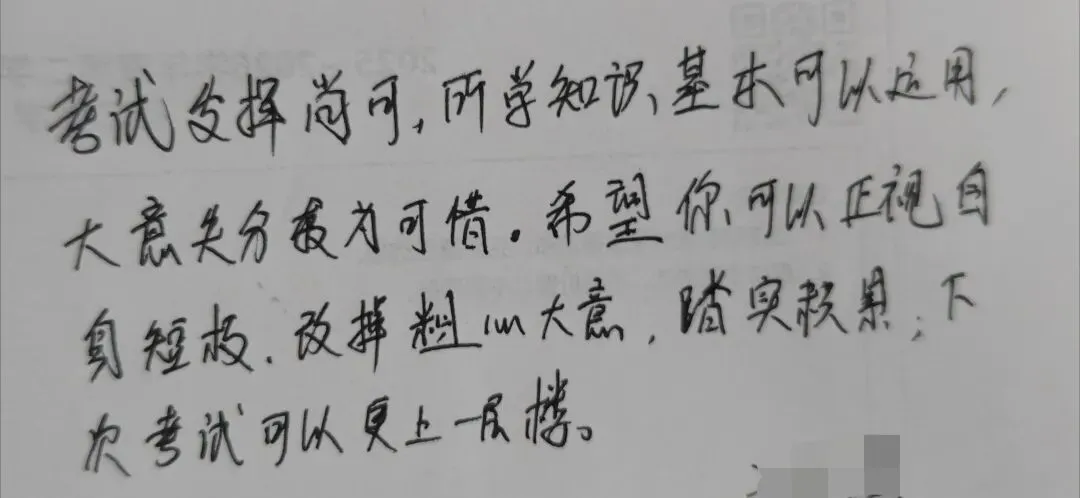 考试发挥尚可，所学知识基本可以运用，
大意失分最为可惜。希望你可以正视自
身短板，改掉粗心大意，踏实积累，下
次考试可以更上一层楼。